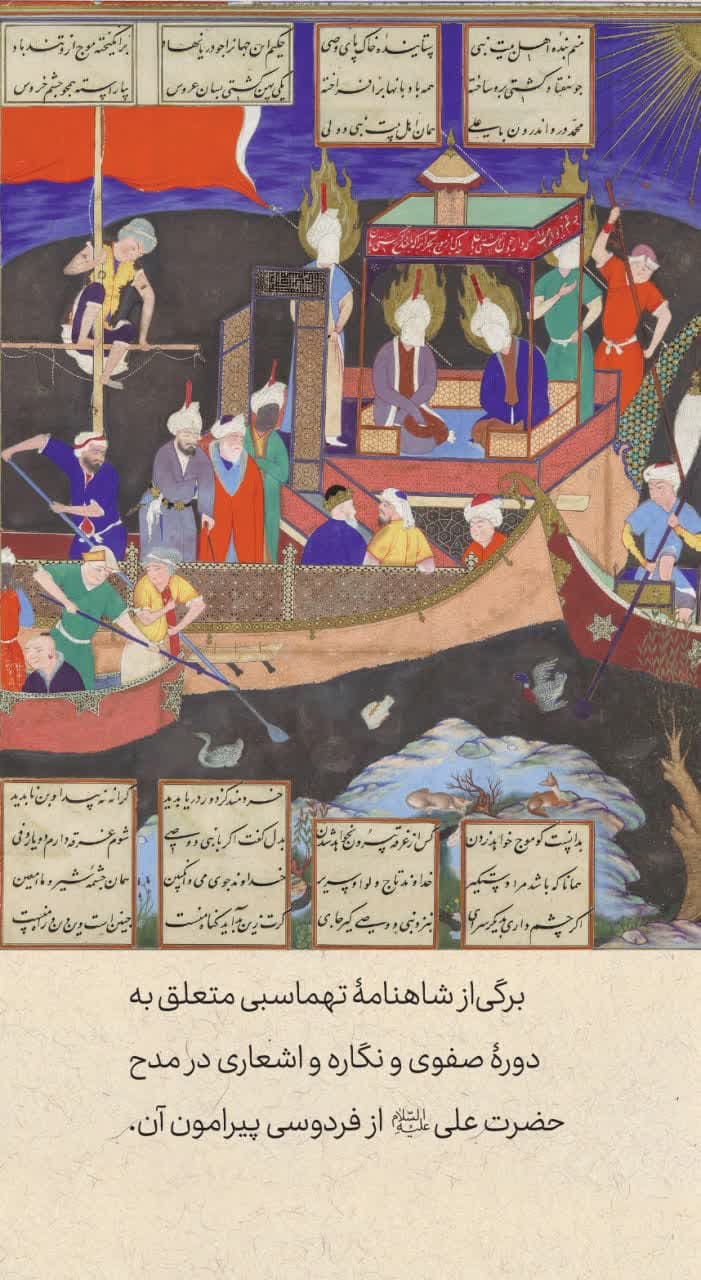 منم بنده اهل بیت نبی
ستاینده خاک پای وصی
حکیم این جهانرا چو دریا نهاد
برانگیخته موج ازو تندباد
چو هفتاد کشتی برو ساخته
همه بادبانها برافراخته
یکی پهن کشتی بسان عروس
بیاراسته همچو چشم خروس
محمد درو اندرون با علی
همان اهل بیت نبی و ولی
خردمند کز دور دریا بدید
کرانه نه پیدا و بن ناپدید
بدانست کو موج خواهد زدن
کس از غرقه بیرون نخواهد شدن
بدل گفت اگر با نبی و وصی
شوم غرقه دارم دو یار وفی
همانا که باشد مرا دستگیر
خداوند تاج و لوا و سریر
خداوند جوی می و انگبین
همان چشمه شیر و ماء معین
اگر چشم داری بدیگر سرای
بنزد نبی و وصی گیر جای
گرت زین بد آید گناه منست
چنین است وین دین راه منست
برگی از شاهنامهٔ تهماسبی متعلق به
دورهٔ صفوی و نگاره و اشعاری در مدح
حضرت علی علیه السلام از فردوسی پیرامون آن.